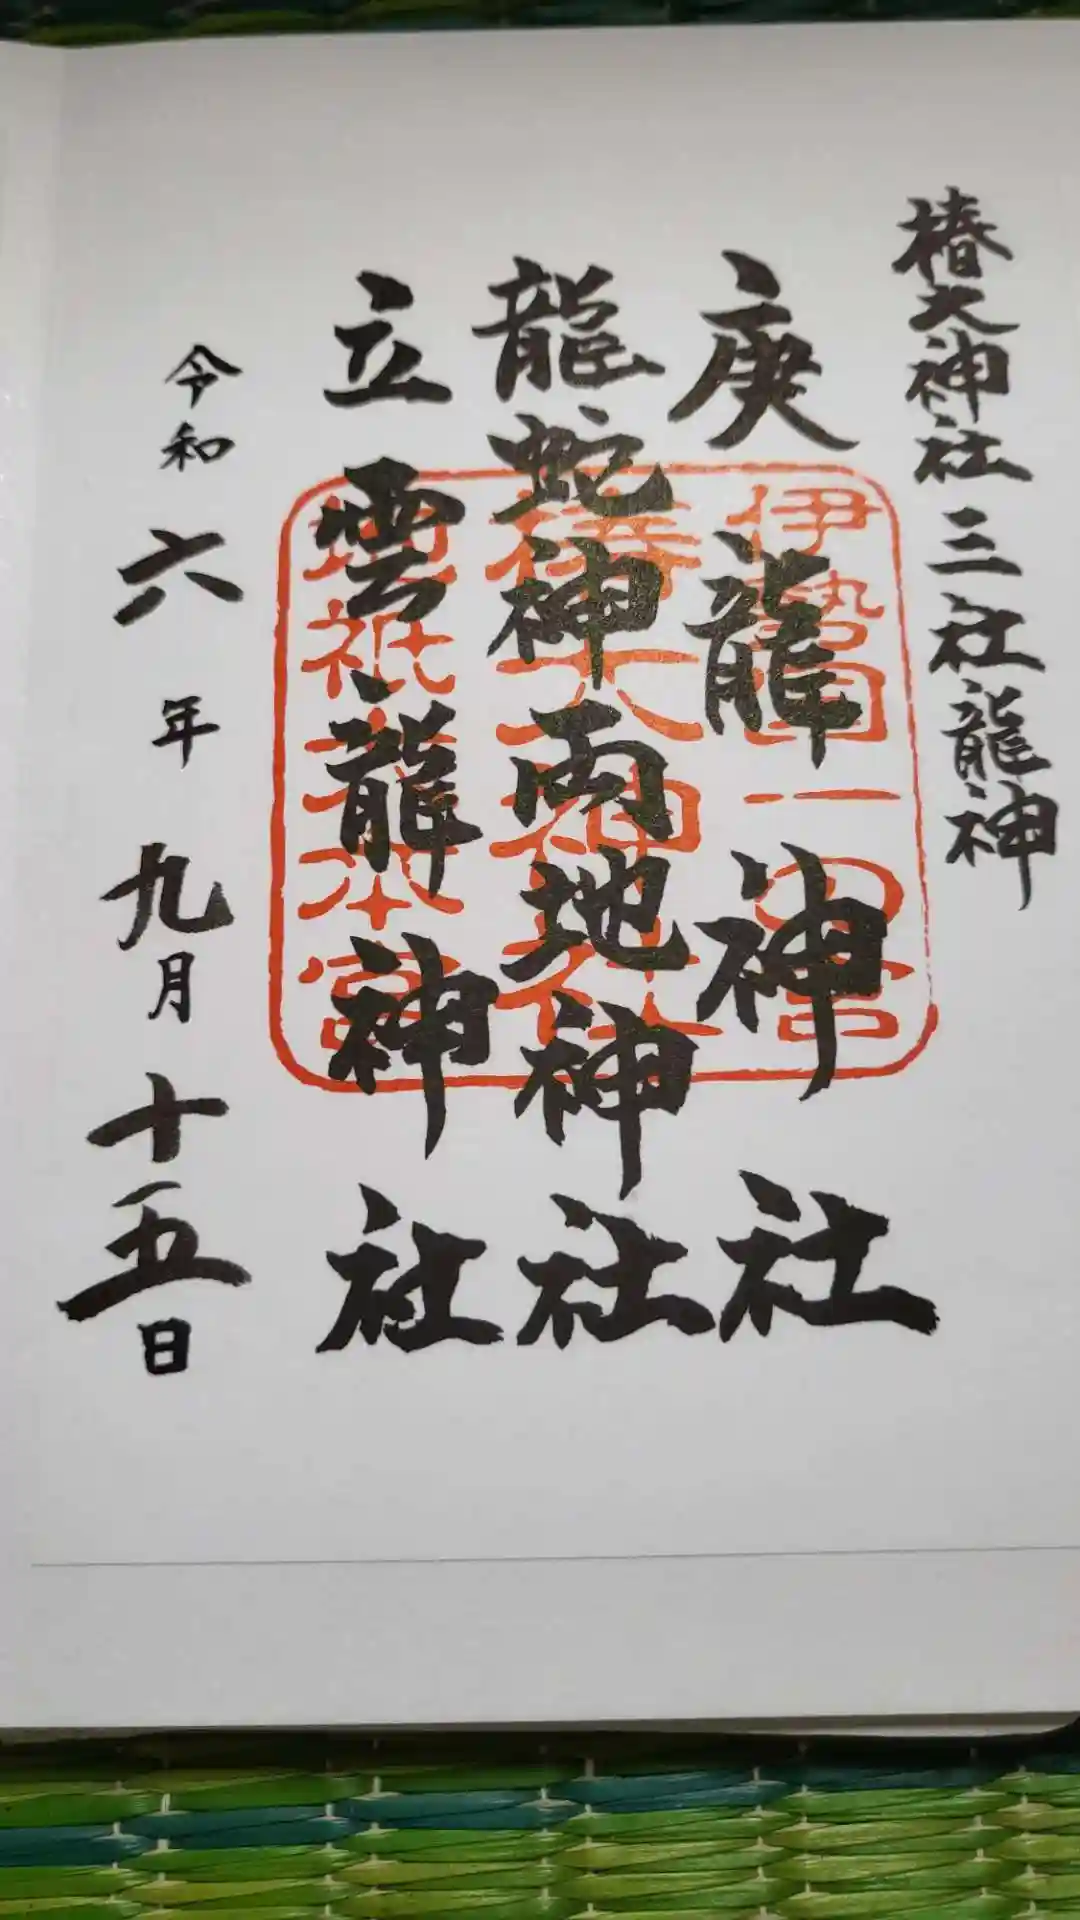 椿大神社 三社龍神
庚龍神社
龍蛇神両地神社
立雲龍神社
令和六年九月十五日
伊勢国一の宮
椿大神社
地祇大本宮